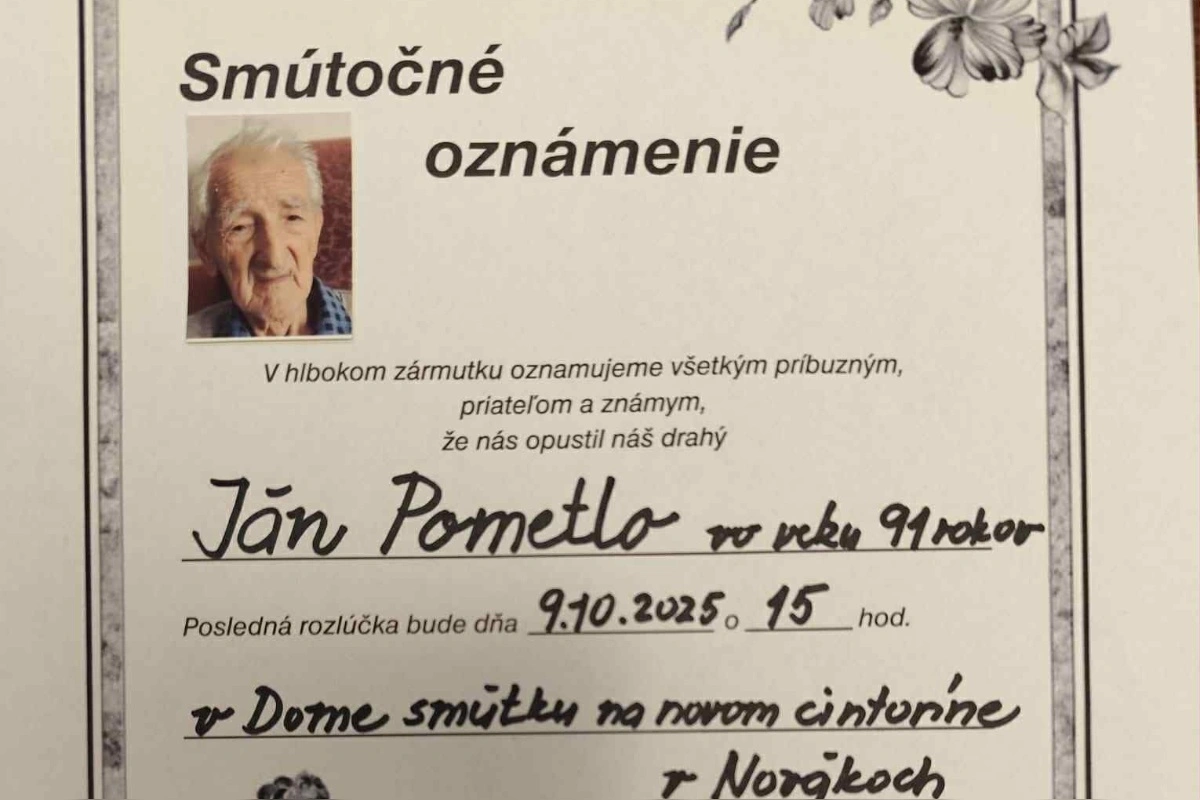 Smútočné
oznámenie
V hlbokom zármutku oznamujeme všetkým príbuzným,
priateľom a známym,
že nás opustil náš drahý
Ján Pometlo vo veku 91 rokov
Posledná rozlúčka bude dňa 9.10.2025 o 15 hod.
v Dome smútku na novom cintoríne
v Novákoch